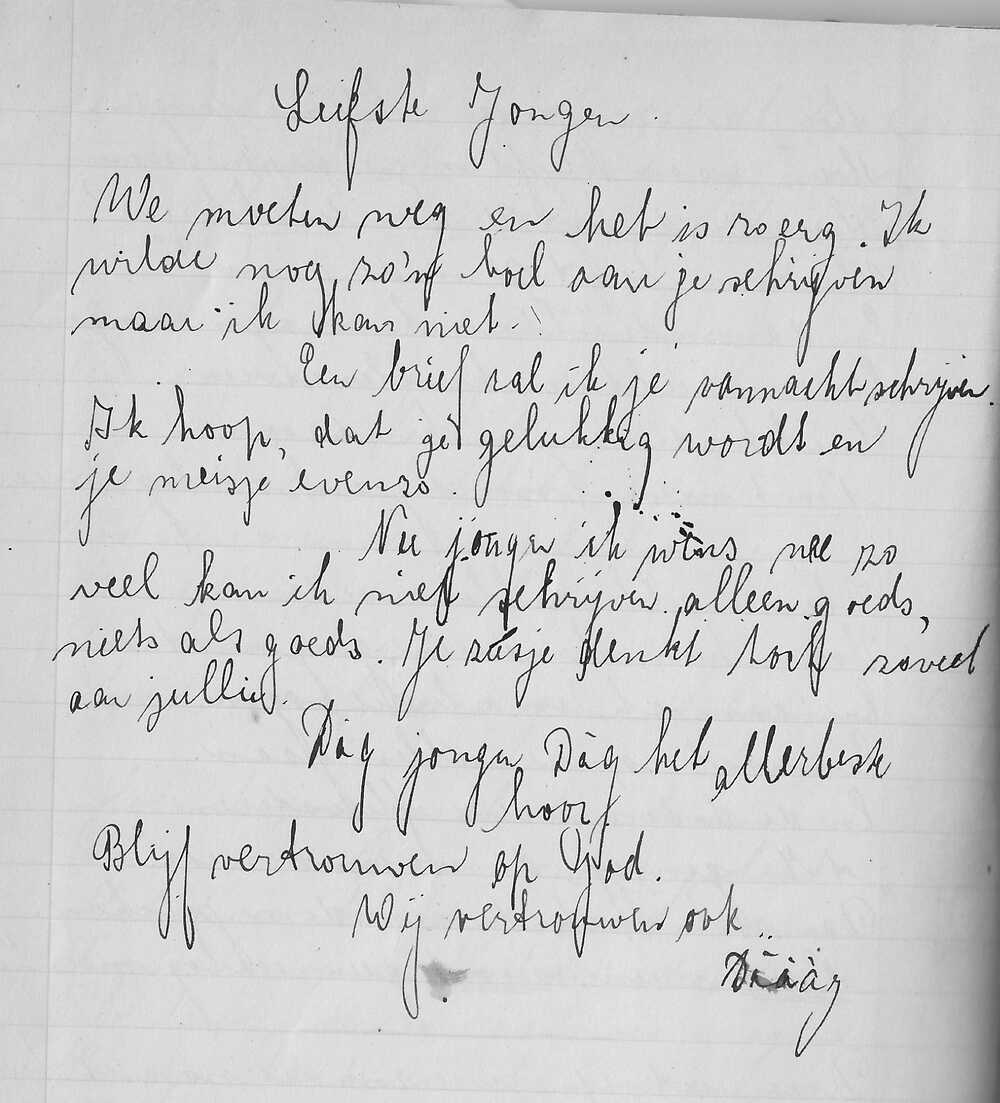 Liefste Jongen.
We moeten weg en het is zo erg. Ik
wilde nog zo'n boel aan je schrijven
maar ik kan niet.
Een brief zal ik je vannacht schrijven.
Ik hoop, dat ge gelukkig wordt en
je meisje evenzo.
Nu jongen ik wens nu zo
veel kan ik niet schrijven alleen goeds,
niets als goeds. Je zusje denkt toch zoveel
aan jullie.
Dàg jongen Dàg het allerbeste
hoor
Blijf vertrouwen op God.
Wij vertrouwen ook..
Dàààg